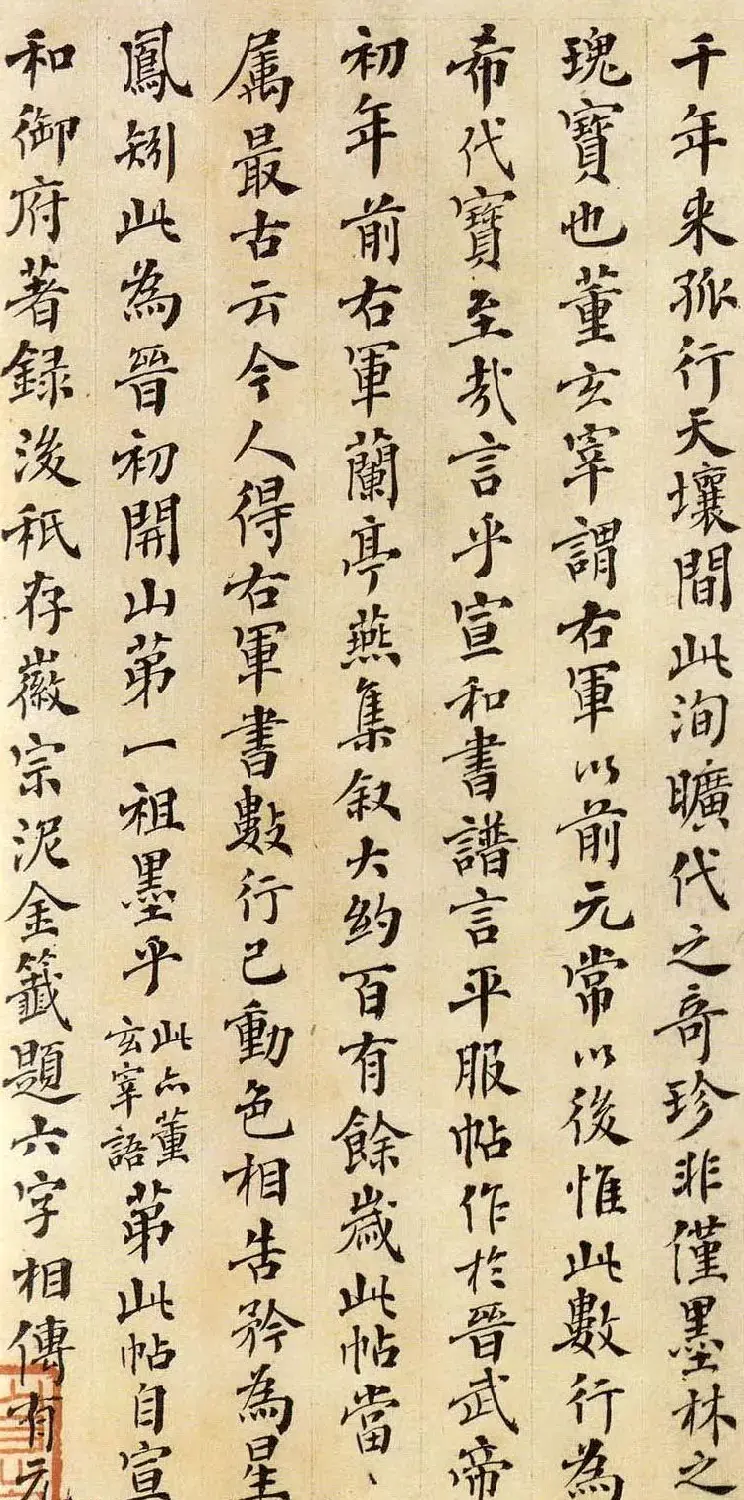 千年来孤行天壤間此洵曠代之奇珍非僅墨林之
瑰寶也董玄宰謂右軍以前元常以後惟此數行為
希代寶至哉言乎宣和書譜言平服帖作於晉武帝
初年前右軍蘭亭燕集叙大約百有餘歲此帖當〻
属最古云今人得右軍書數行已動色相告矜為星
鳳矧此為晉初開山苐一祖墨乎此亦董玄宰語苐此帖自宣
和御府著録後秖存徽宗泥金籤題六字相傳有元